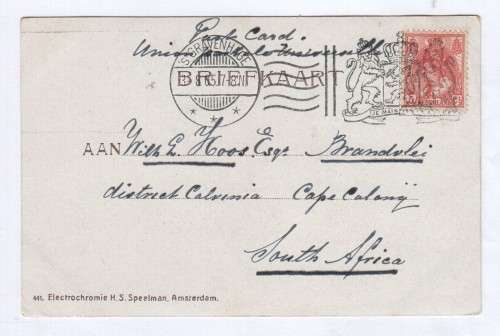 Post Card.
Union Postale Universelle
'S-GRAVENHAGE
BRIEFKAART
AAN Wilh E. Hoos, Esqr Brandvlei
district Calvinia Cape Colony
South Africa
441. Electrochromie H. S. Speelman, Amsterdam.